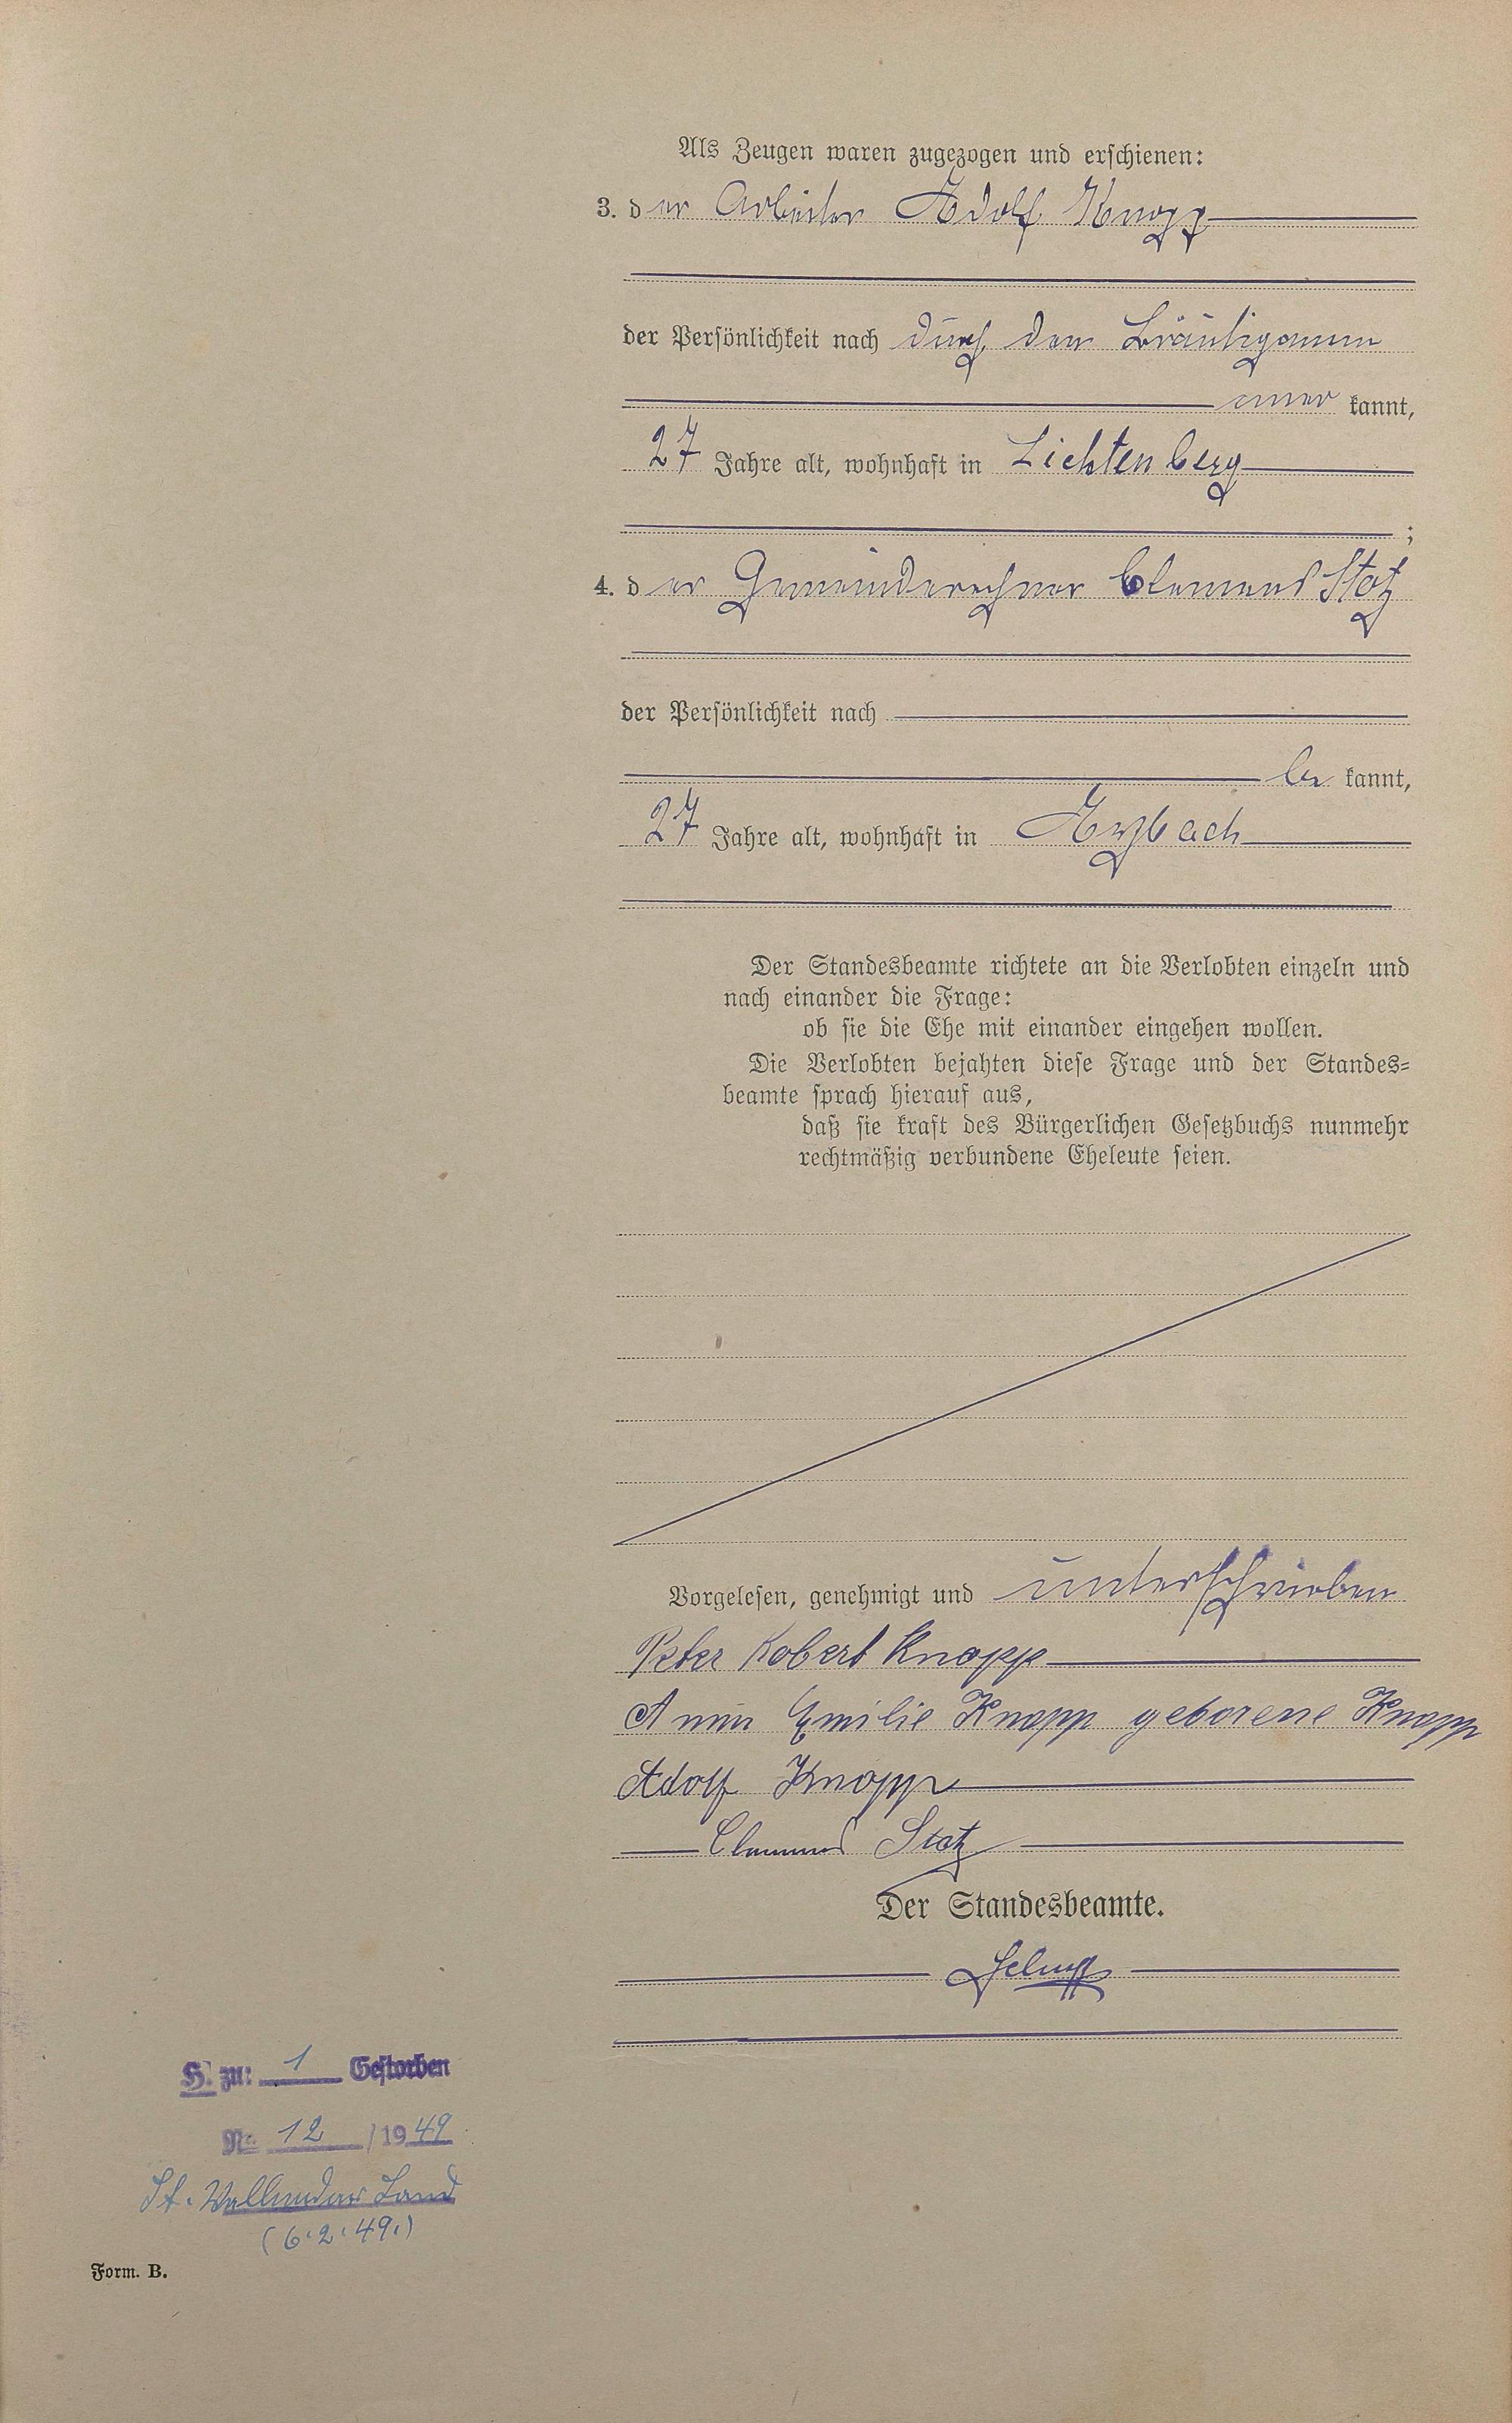 Als Zeugen waren zugezogen und erschienen:
3. der Arbeiter Adolf Knopp
der Persönlichkeit nach durch den Bräutigamm
aner kannt,
27 Jahre alt, wohnhaft in Lichtenberg
;
4. der Gemeinderechner Clemens Stotz
der Persönlichkeit nach
be kannt,
27 Jahre alt, wohnhaft in
Der Standesbeamte richtete an die Verlobten einzeln und
nach einander die Frage:
ob sie die Ehe mit einander eingehen wollen.
Die Verlobten bejahten diese Frage und der Standes-
beamte sprach hierauf aus,
daß sie kraft des Bürgerlichen Gesetzbuchs nunmehr
rechtmäßig verbundene Eheleute seien.
Vorgelesen, genehmigt und unterschrieben
Peter Robert Knopp
Anna Emilie Knopp geborene Knopp
Adolf Knopp
Clemens Stotz
Der Standesbeamte.
H. zu: 1 Gestorben
No 12 / 1949
St. Vallendar Land
(6.2.49.)
Form. B.